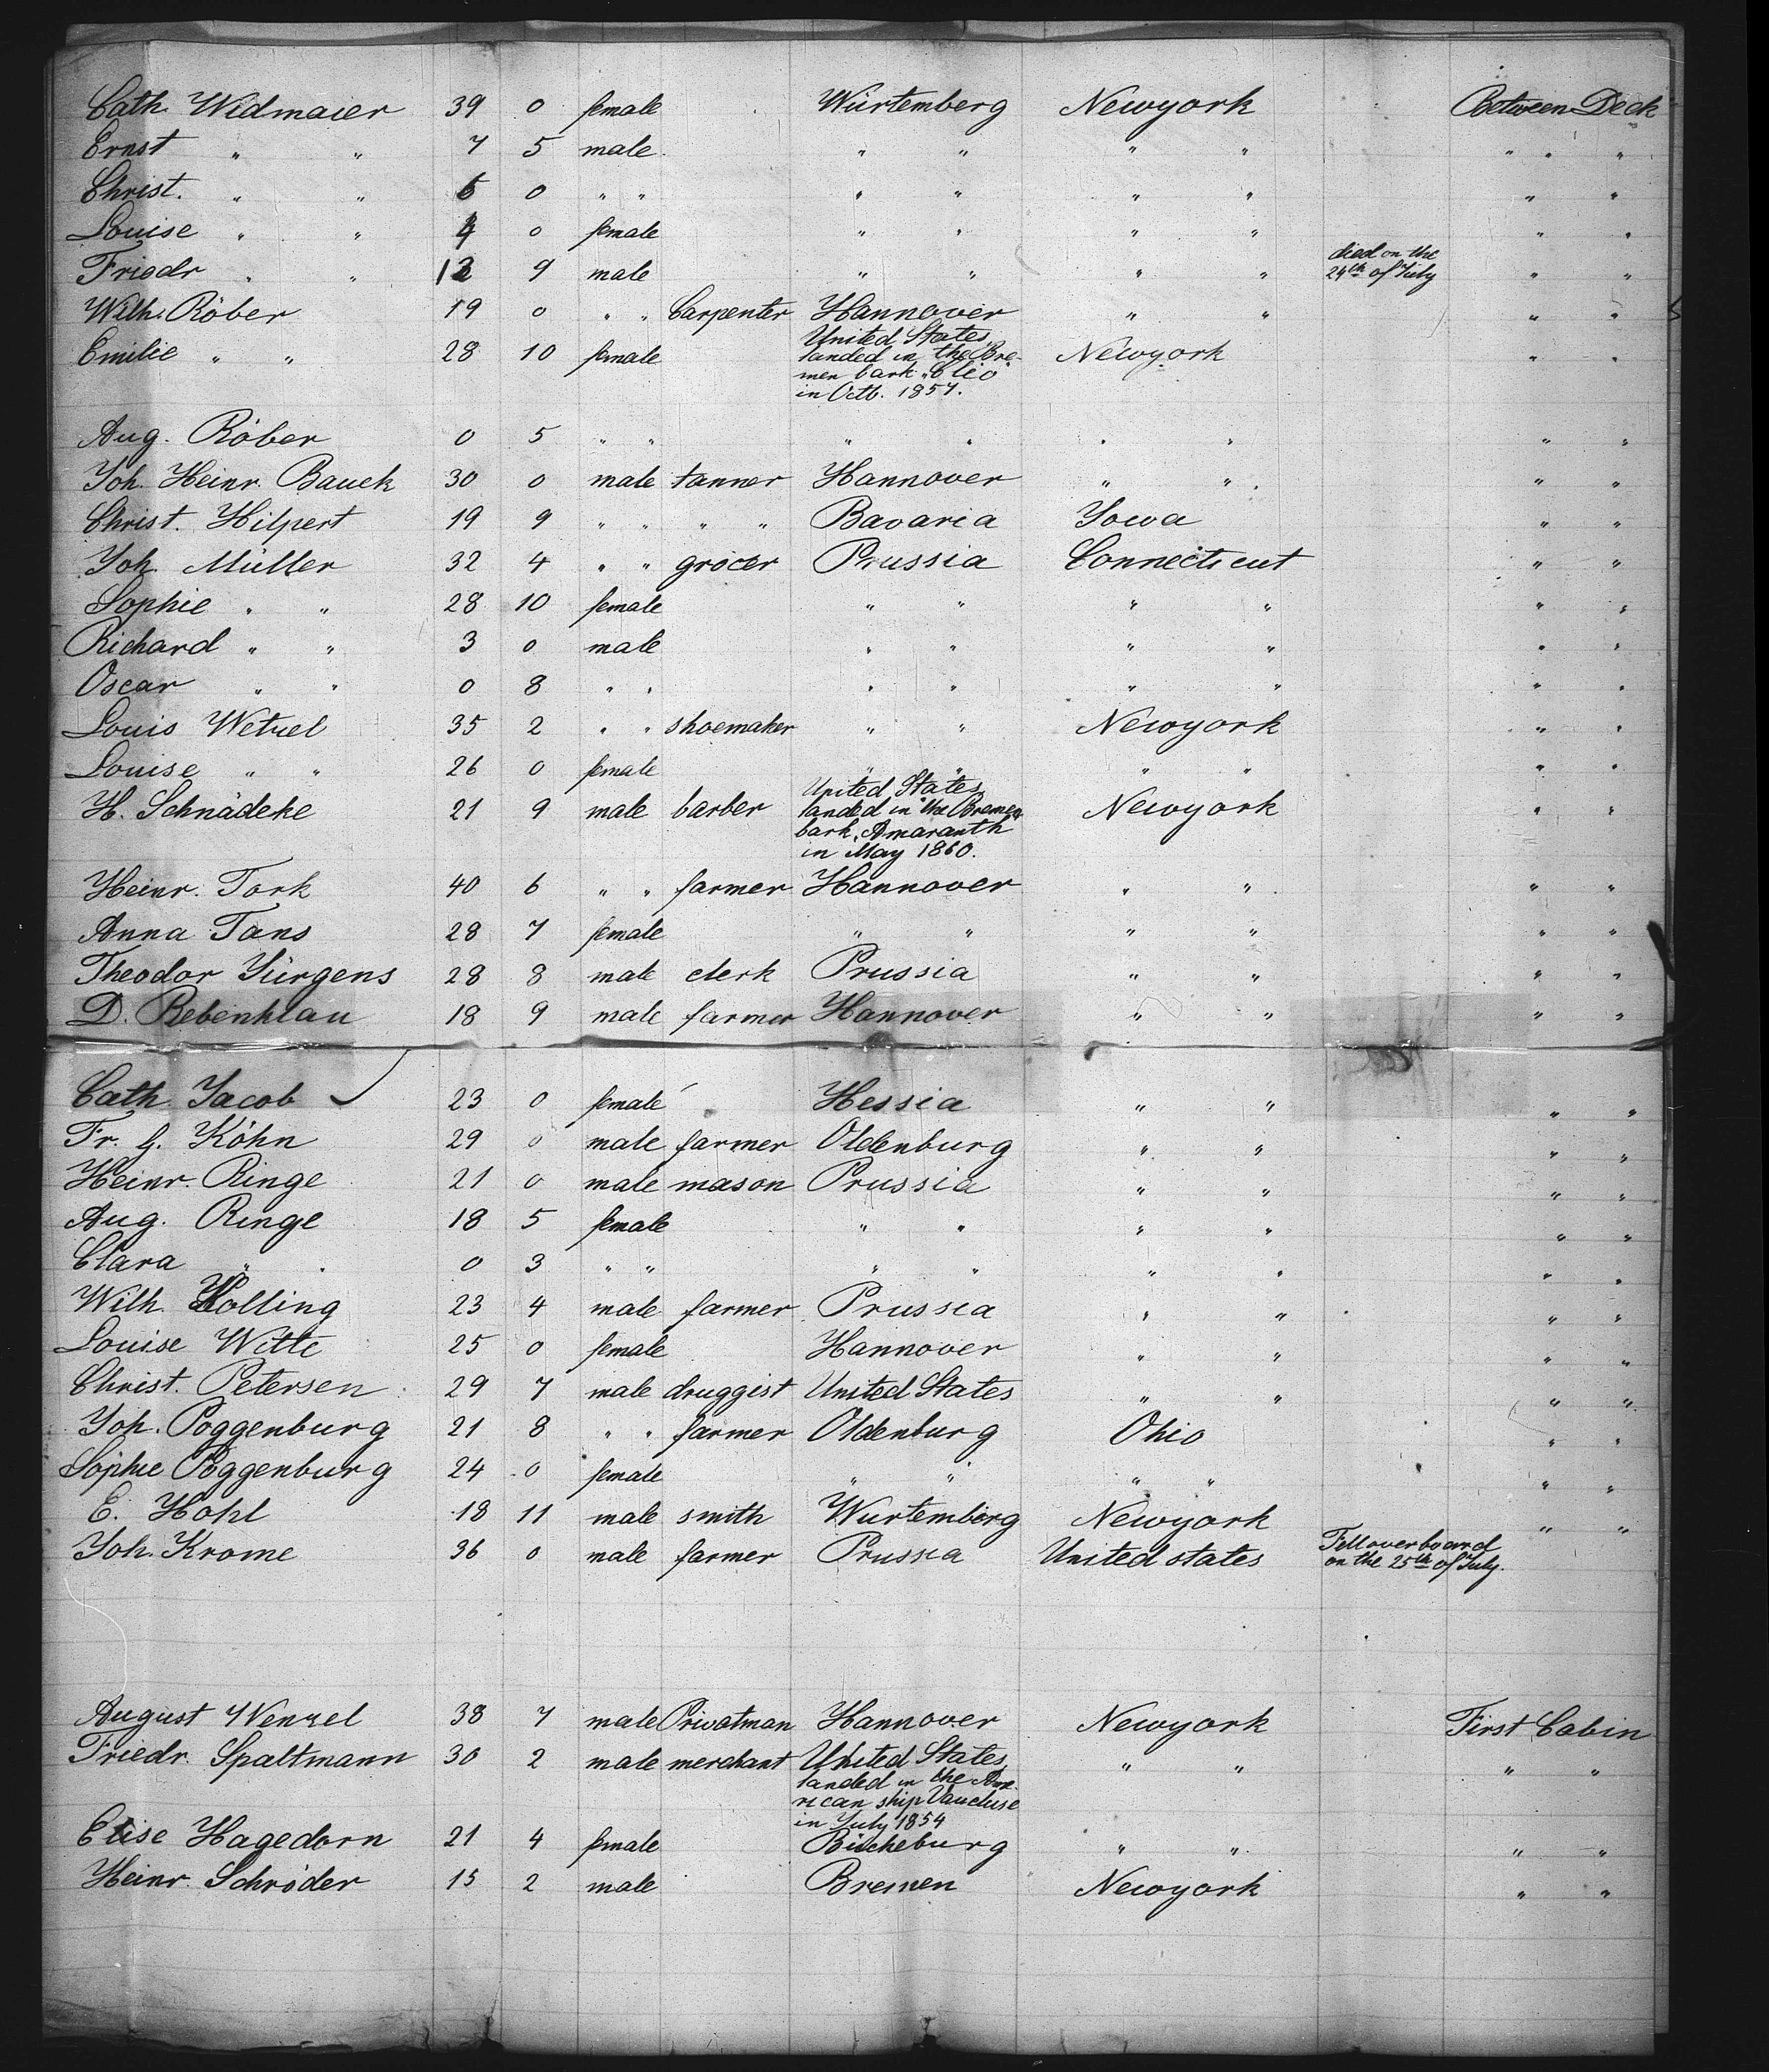 Cath. Widmaier 39 0 female Würtemberg Newyork Between Deck
Ernst " " 7 5 male " " " " " " "
Christ. " " 6 0 " " " " " " " "
Louise " " 4 0 female " " " " " "
Friedr " " 9 male " " " " died on the 24th of July " "
Wilh. Röber 19 0 " " Carpenter Hannover " " " "
Emilie " " 28 10 female United States, landed in the Bre- Newyork " "
men bark "Clio"
in Octb. 1857.
Aug. Röber 0 5 " " " " " " " "
Joh. Heinr. Bauek 30 0 male tanner Hannover " " " "
Christ. Hilpert 19 9 " " " " Bavaria Iowa " "
Joh. Müller 32 4 " " grocer Prussia Connecticut " "
Sophie " " 28 10 female " " " " " "
Richard " " 3 0 male " " " " " "
Oscar " " 0 8 " " " " " " " "
Louis Wetzel 35 2 " " shoemaker " " Newyork " "
Louise " " 26 0 female " " " " " "
H. Schnädeke 21 9 male barber United States, landed in the Bremen Newyork " "
bark "Amaranth
in May 1860.
Heinr. Tork 40 6 " " farmer Hannover " " " "
Anna Tans 28 7 female " " " " " "
Theodor Jürgens 28 8 male clerk Prussia " " " "
D. Rebenklau 18 9 male farmer Hannover " " " "
Cath. Jacob 23 0 female Hessia " " " "
Fr. G. Köhn 29 0 male farmer Oldenburg " " " "
Heinr. Ringe 21 0 male mason Prussia " " " "
Aug. Ringe 18 5 female " " " " " "
Clara " " 0 3 " " " " " " " "
Wilh. Kolling 23 4 male farmer Prussia " " " "
Louise Witte 25 0 female Hannover " " " "
Christ. Petersen 29 7 male druggist United States " " " "
Joh. Poggenburg 21 8 " " farmer Oldenburg Ohio " "
Sophie Poggenburg 24 0 female " " " " " "
E. Hohl 18 11 male smith Wurtemberg Newyork " "
Joh. Krome 36 0 male farmer Prussia United states Fell overboard
on the 25th of July.
August Wenzel 38 7 male Privatman Hannover Newyork First Cabin
Friedr. Spaltmann 30 2 male merchant United States " " " "
landed in the Ame-
rican ship Vaucluse
in July 1854
Elise Hagedorn 21 4 female Bückeburg " " " "
Heinr. Schröder 15 2 male Bremen Newyork " "